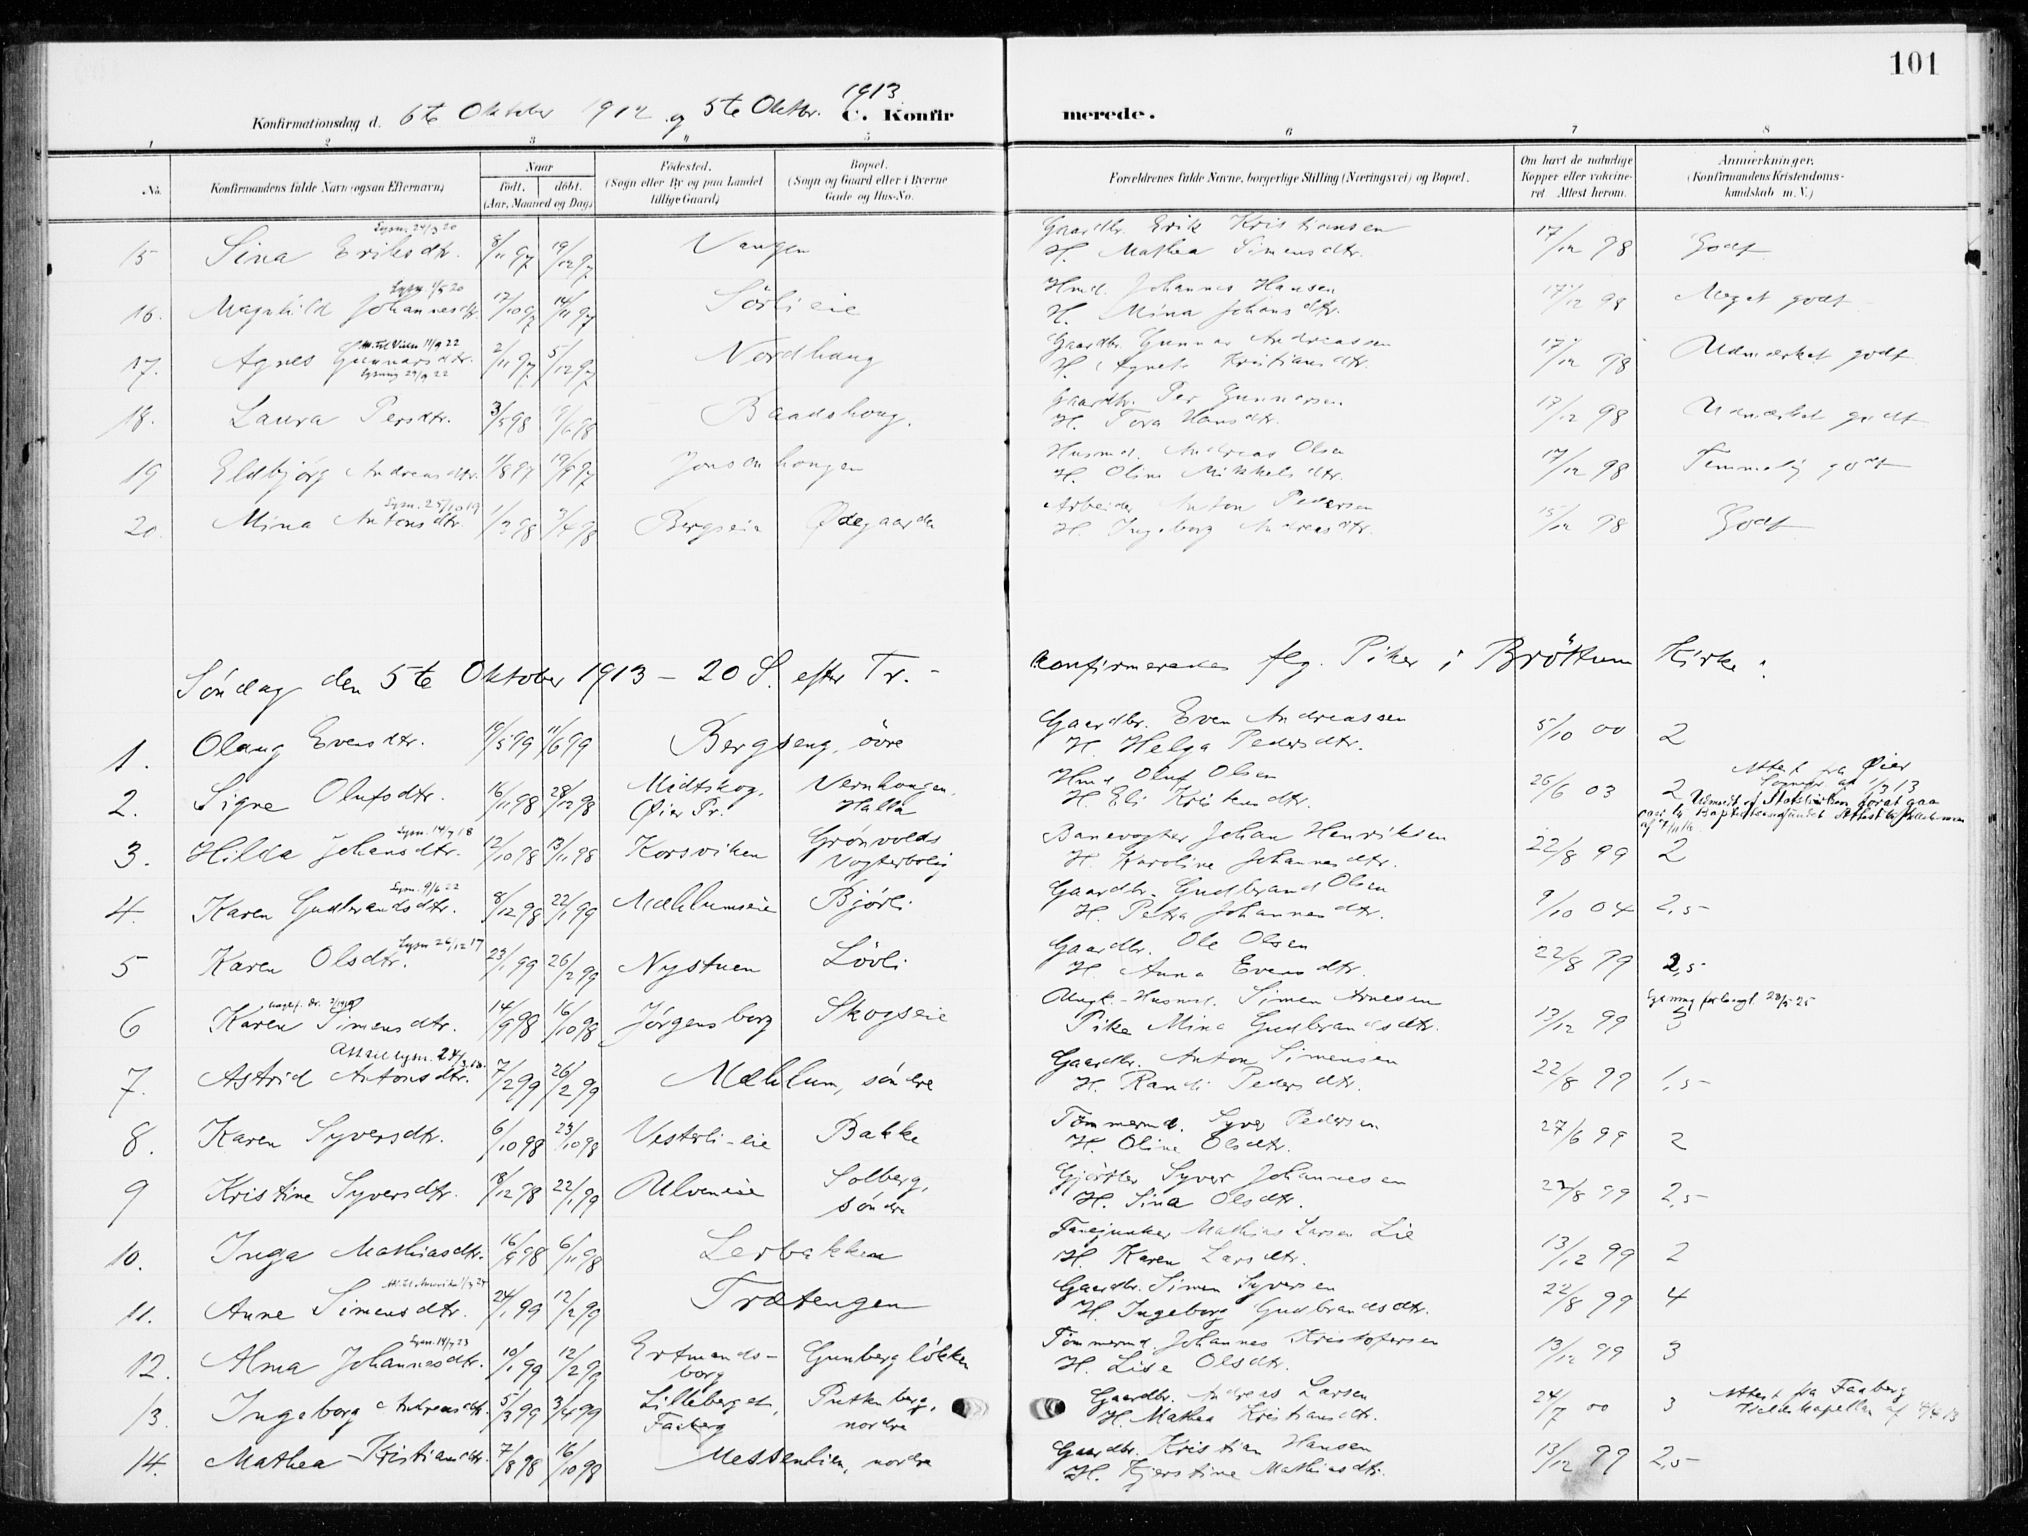 101
Konfirmationsdag d. 6te Oktober 1912 og 5te Oktbr. 1913 C. Konfir merede.
1 2 3 4 5 6 7 8
No. Konfirmandens fulde Navn (ogsaa Efternavn)
Naar født. døbt. (Aar, Maaned og Dag)
Fødested. (Sogn eller By og paa Landet tillige Gaard)
Bopæl. (Sogn og Gaard eller i Byerne Gade og Hus-No.
Forældrenes fulde Navne, borgerlige Stilling (Næringsvei) og Bopæl.
Om havt de naturlige Kopper eller vaccineret. Attest herom.
Anmærkninger. (Konfirmandens Kristendomskundskab m. V.)
Lysn. 24/3 20
15 Sina Eriksdtr. 8/11 97 19/12 97 Vangen Gaardbr. Erik Kristiansen 17/12 98 Godt
H. Mathea Simensdtr.
16. Magnhild Johannesdtr. 17/10 97 14/11 97 Sörlieie Hmd. Johannes Hansen 17/12 98 Meget godt
H. Mina Johansdtr.
17. Agnes Gunnarsdtr. 2/11 97 5/12 97 Nordhaug Gaardbr. Gunnar Andreassen 17/12 98 Udmærket godt
Lysning 29/9 22 H. Agnete Kristiansdtr.
18. Laura Persdtr. 3/5 98 Baadshoug. Gaardbr. Per Gunnarsen 17/12 98 Udmærket godt
H. Tora Hansdtr.
19 Eldbjörg Andreasdtr. 1/8 97 19/9 97 Husmd. Andreas Olsen 17/12 98 Temmelig godt
H. Oline Mikkelsdtr.
Lysn. 25/10 19
20. Mina Antonsdtr. 1/3 98 3/4 98 Bergseie Ødegaarden Arbeider Anton Pedersen 15/12 98 Godt
H. Ingeborg Andreasdtr.
Søndag den 5te Oktober 1913 - 20 S. efter Tr. - konfirmeredes flg. Piker i Bröttum Kirke:
1. Olaug Evensdtr. 19/5 99 11/6 99 Bergseng, övre Gaardbr. Even Andreassen 5/10 00 2
H. Helga Pedersdtr.
2. Signe Olufsdtr. 16/11 98 28/12 98 Midtskog, Øier Pr. Vernhougen, Halla Hmd Oluf Olsen 26/6 03 2 Attest fra Øier
H. Eli Kristensdtr.
Lysn. 14/7 18
3. Hilda Johansdtr. 12/10 98 13/11 98 Korsviken Grönvolds Vogterbolig Banevogter Johan Henriksen 22/8 99 2
H. Karoline Johannesdtr.
Lysn. 9/6 22
4. Karen Gudbrandsdtr. 8/12 98 22/1 99 Mæhlumseie Bjørli Gaardbr. Gudbrand Olsen 9/10 04 2,5
H. Petra Johannesdtr.
Lysn 26/12 17
5 Karen Olsdtr. 23/1 99 26/2 99 Nystuen Lövli Gaardbr. Ole Olsen 22/8 99 2,5
H. Anna Evensdtr.
6 Karen Simensdtr. 14/9 98 16/10 98 Jörgensborg Skogseie Ungk.-Husmd. Simen Arnesen 13/12 99 3
Pike Mina Gudbrandsdtr.
7. Astrid Antonsdtr. 7/2 99 26/2 99 Mæhlum, søndre Gaardbr. Anton Simensen 22/8 99 1,5
H. Randi Pedersdtr.
8. Karen Syversdtr. 6/10 98 23/10 98 Vesterli-eie Bakke Tømmermd. Syver Pedersen 27/6 99 2
H. Oline Olsdtr.
9 Kristine Syversdtr. 18/12 98 22/1 99 Ulveneie Solberg, søndre Gjørtler Syver Johannesen 22/8 99 2,5
H. Sina Olsdtr.
10. Inga Mathiasdtr. 16/9 98 6/11 98 Lerbakken Fanejunker Mathias Larsen Lie 13/12 99 2
H. Karen Larsdtr.
11. Anne Simensdtr. 24/1 99 12/2 99 Trætengen Gaardbr. Simen Syversen 22/8 99 4
H. Ingeborg Gudbrandsdtr.
Lysn. 14/7 23
12. Alma Johannesdtr. 10/1 99 12/2 99 Ertmandsborg Gunberglökken Tømmermd. Johannes Kristofersen 13/12 99 3
H. Lise Olsdtr.
13. Ingeborg Andreasdtr. 5/3 99 3/4 99 Faaberg nordre Gaardbr. Andreas Larsen 24/7 00 3 Attest fra Faaberg
H. Mathea Kristiansdtr.
14. Mathea Kristiansdtr. 7/8 98 16/10 98 Messenlien, nordre Gaardbr. Kristian Hansen 13/12 99 2,5
H. Kjerstine Mathiasdtr.